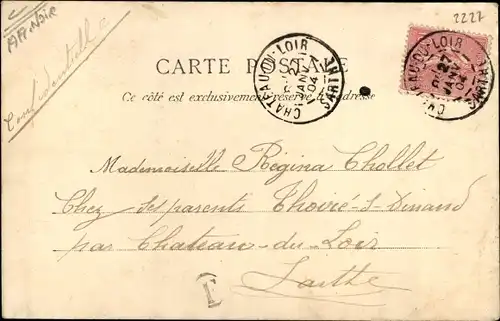 2227
AR-NOIR
Confidentielle
CARTE POSTALE
Ce côté est exclusivement réservé à l'adresse
CHATEAU-DU-LOIR
22
JANV
04
SARTHE
CHATEAU-DU-LOIR
22
JANV
04
SARTHE
Mademoiselle Regina Chollet
Chez ses parents Thoiré-s-Dinand
par Chateau-du-Loir
Sarthe